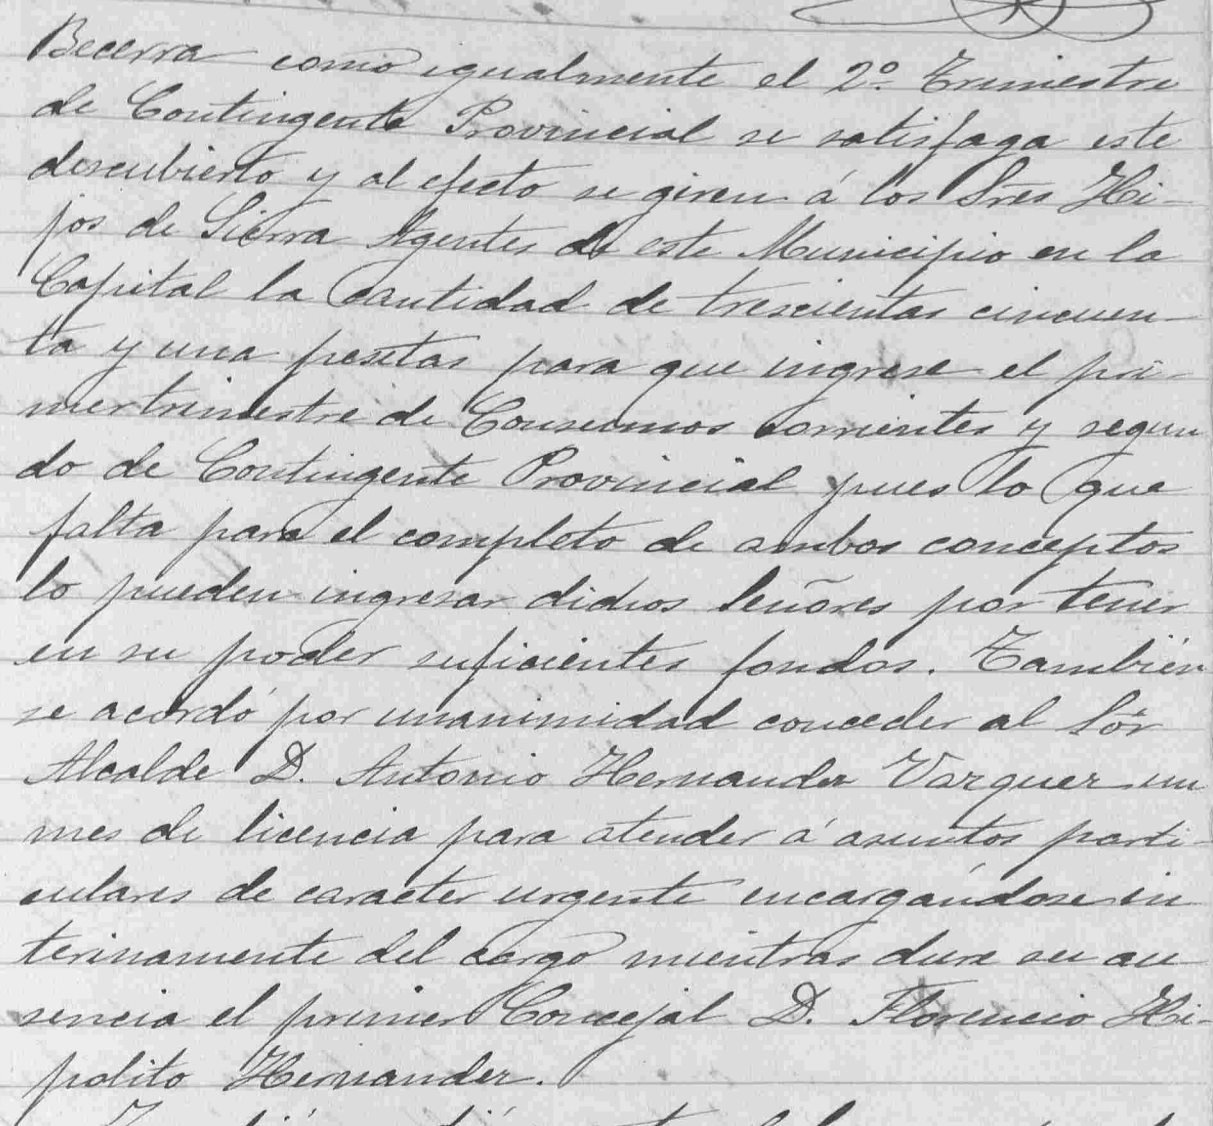 Becerra como igualmente el 2º. Trimestre
de Contingente Provincial se satisfaga este
descubierto y al efecto se giren á los Sres Hi-
jos de Sierra Agentes de este Municipio en la
Capital la Cantidad de trescientas cincuen-
ta y una pesetas para que ingrese el pri-
mer trimestre de Consumos corrientes y segun
do de Contingente Provincial pues lo que
falta para el completo de ambos conceptos
lo pueden ingresar dichos Señores por tener
en su poder suficientes fondos. También
se acordó por unanimidad conceder al Sór
Alcalde D. Antonio Hernandez Vazquez un
mes de licencia para atender á asuntos parti-
culares de caracter urgente encargándose in
terinamente del cargo mientras dure su au
sencia el primer Concejal D. Florencio Hi-
polito Hernandez.